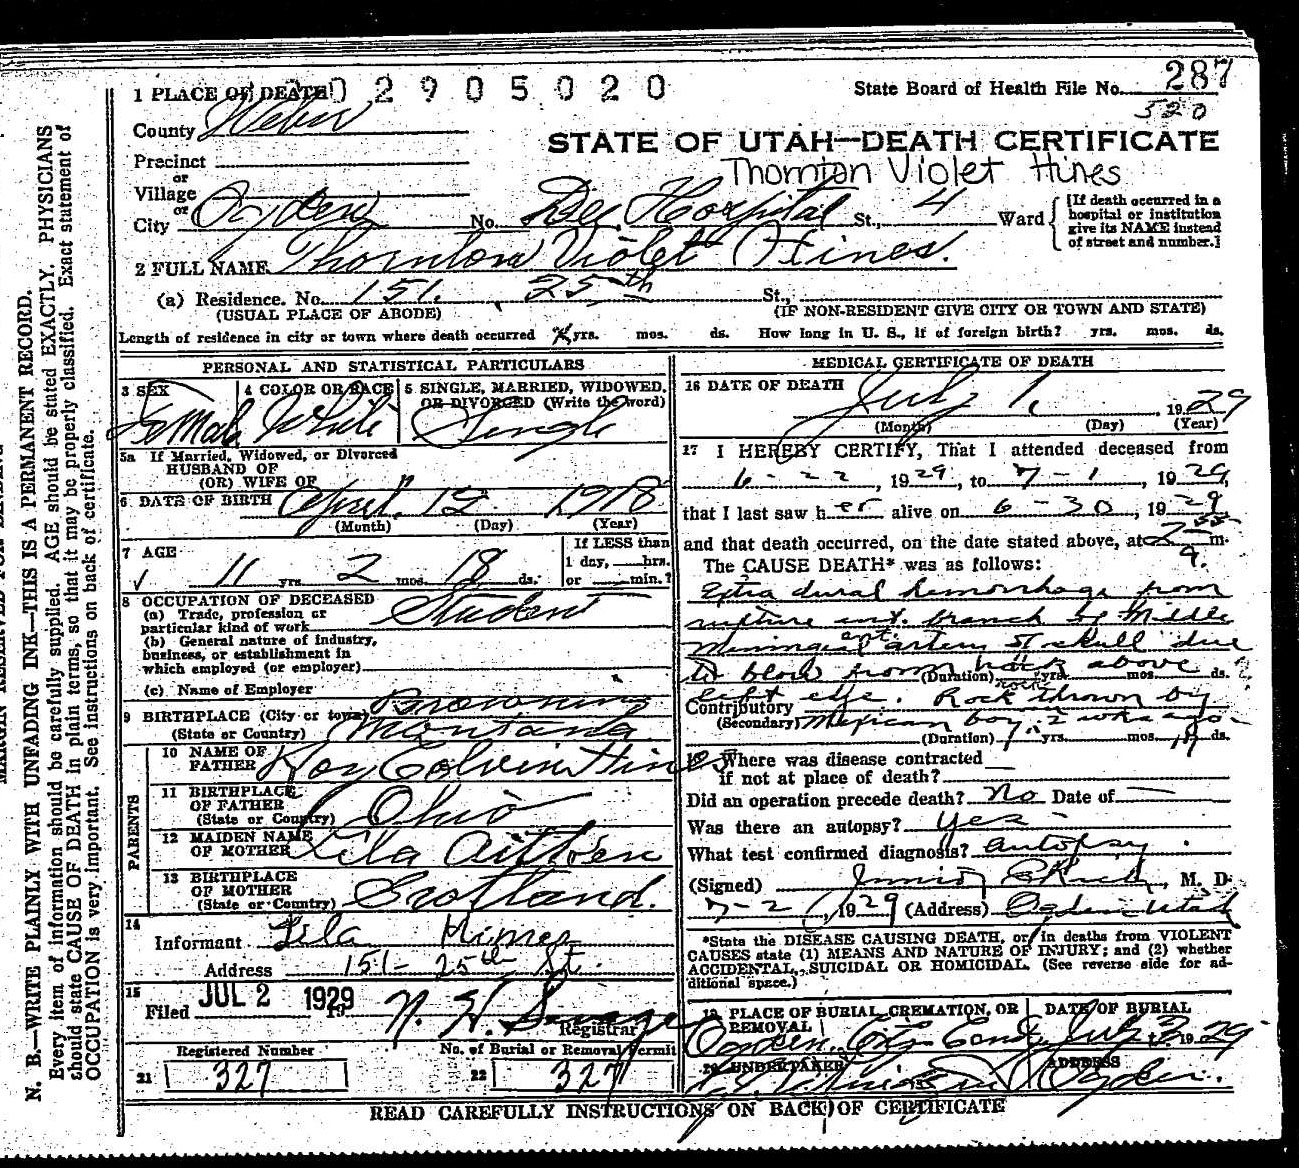 1 PLACE OF DEATH 0 2 9 0 5 0 2 0
State Board of Health File No. 287
520
County Weber
STATE OF UTAH—DEATH CERTIFICATE
Thornton Violet Hines
Precinct
or
Village
or
City Ogden No. Dee Hospital St., 4 Ward
[If death occurred in a hospital or institution give its NAME instead of street and number.]
2 FULL NAME Thornton Violet Hines.
(a) Residence. No. 151. 25th St.,
(USUAL PLACE OF ABODE) (IF NON-RESIDENT GIVE CITY OR TOWN AND STATE)
Length of residence in city or town where death occurred yrs. mos. ds. How long in U. S., if of foreign birth? yrs. mos. ds.
PERSONAL AND STATISTICAL PARTICULARS
3 SEX Female
4 COLOR OR RACE White
5 SINGLE, MARRIED, WIDOWED, OR DIVORCED (Write the word) Single
5a If Married, Widowed, or Divorced
HUSBAND OF
(OR) WIFE OF
6 DATE OF BIRTH April 12 1918
(Month) (Day) (Year)
7 AGE
11 yrs. 2 mos. 18 ds.
If LESS than
1 day, hrs.
or min.?
8 OCCUPATION OF DECEASED
(a) Trade, profession or
particular kind of work Student
(b) General nature of industry,
business, or establishment in
which employed (or employer)
(c) Name of Employer
9 BIRTHPLACE (City or town) Browning
(State or Country) Montana
PARENTS
10 NAME OF
FATHER Roy Colvin Hines
11 BIRTHPLACE
OF FATHER
(State or Country) Ohio
12 MAIDEN NAME
OF MOTHER Lila Aitken
13 BIRTHPLACE
OF MOTHER
(State or Country) Scotland.
14
Informant Lila Hines
Address 151- 25th St.
15
Filed JUL 2 1929 19 N. H. Savage
Registrar
Registered Number No. of Burial or Removal Permit
21 327 22 327
MEDICAL CERTIFICATE OF DEATH
16 DATE OF DEATH
July 1, 1929
(Month) (Day) (Year)
17 I HEREBY CERTIFY, That I attended deceased from
6-22, 1929, to 7-1, 1929,
that I last saw her alive on 6-30, 1929
and that death occurred, on the date stated above, at 2 55 a. m.
The CAUSE DEATH* was as follows:
Extra dural hemorrhage from
rupture ant. branch of Middle
Meningeal artery skull due
to blow from rock above
(Duration) yrs. mos. ds.
left eye. Rock thrown by
Contributory
(Secondary) Mexican boy 2 wks ago
(Duration) yrs. mos. ds.
18 Where was disease contracted
if not at place of death?
Did an operation precede death? no Date of
Was there an autopsy? yes
What test confirmed diagnosis? autopsy
(Signed) , M. D.
7-2, 1929 (Address) Ogden Utah
*State the DISEASE CAUSING DEATH, or, in deaths from VIOLENT
CAUSES state (1) MEANS AND NATURE OF INJURY; and (2) whether
ACCIDENTAL, SUICIDAL OR HOMICIDAL. (See reverse side for ad-
ditional space.)
19 PLACE OF BURIAL, CREMATION, OR REMOVAL
Ogden City
DATE OF BURIAL
July 3 1929
20 UNDERTAKER
ADDRESS
Ogden.
READ CAREFULLY INSTRUCTIONS ON BACK OF CERTIFICATE
MARGIN RESERVED FOR BINDING
N. B.—WRITE PLAINLY WITH UNFADING INK—THIS IS A PERMANENT RECORD.
Every item of information should be carefully supplied. AGE should be stated EXACTLY. PHYSICIANS
should state CAUSE OF DEATH in plain terms, so that it may be properly classified. Exact statement of
OCCUPATION is very important. See instructions on back of certificate.